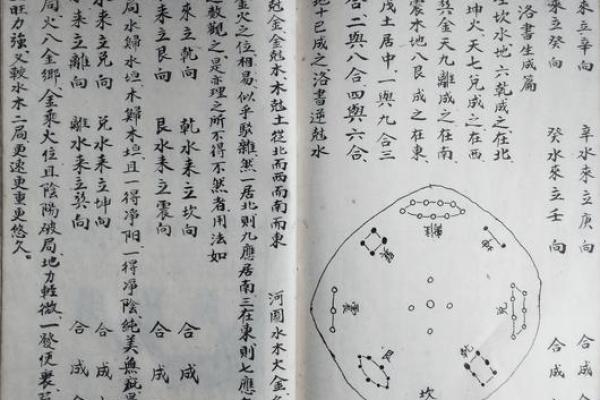 來立辛向 辛水來立庚向 合成
來立癸向 癸水來立壬向 合成
洛書生成篇
坎水地六乾成之在北
坤火天七兌成之在西
巽金天九離成之在南
震木地八艮成之在東
戊土居中一與九合三
合二與八合四與六合
地十已成之洛書逆尅水
離
坤
巽
兌
震
乾
艮
坎
尅金金尅木木尅土從北而西而南而東 河圖水木火金
金火之位相易似乎駁雜然一居北則九應居南三在東則七應
數觀之是亦理之所不得不然者用法如
來立乾向 乾水來立坎向 合成
來立艮向 艮水來立震向 合成
局水婦水垣木婦木垣且一得淨阳一得淨陰純美無疵
水來立兌向 兌水來立坤向 合成
來立離向 離水來立巽向 合成
局火八金鄉金乘火位且陰陽破局地力輕微一發便衰
旺力強又較水木二局更速更重更悠久。